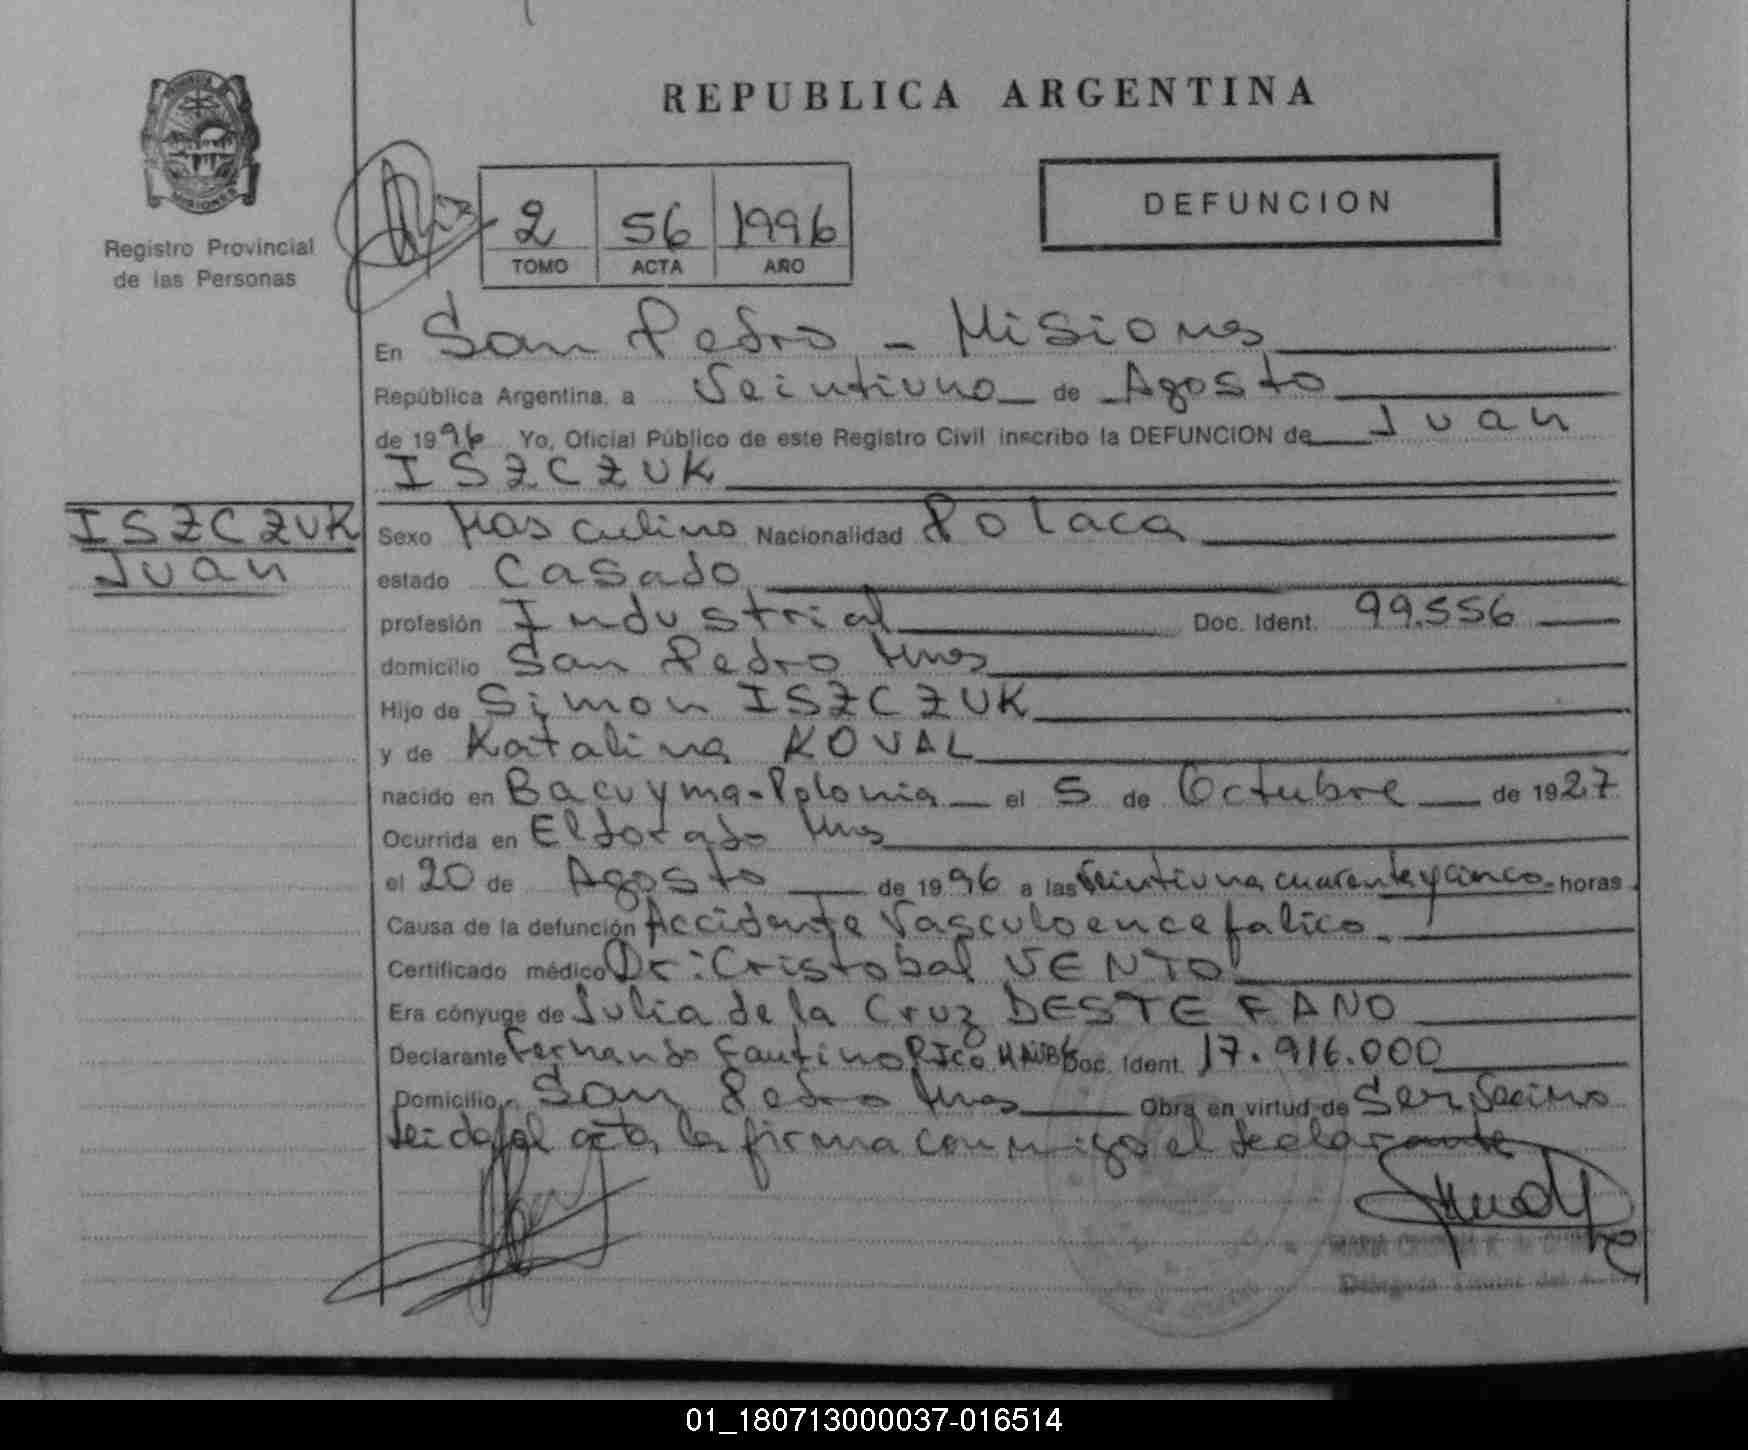 REPUBLICA ARGENTINA
PROVINCIA
MISIONES
Registro Provincial
de las Personas
2 56 1996
TOMO ACTA AÑO
DEFUNCION
En San Pedro - Misiones
República Argentina, a Veintiuno de Agosto
de 1996 Yo, Oficial Público de este Registro Civil inscribo la DEFUNCION de Juan
ISZCZUK
ISZCZUK
Juan
Sexo Masculino Nacionalidad Polaca
estado Casado
profesión Industrial Doc. Ident. 99.556
domicilio San Pedro Mnes
Hijo de Simon ISZCZUK
y de Katalina KOVAL
nacido en Bacuyma-Polonia el 5 de Octubre de 1927
Ocurrida en Eldorado Mnes
el 20 de Agosto de 1996 a las Veintiuna cuarenta y cinco horas
Causa de la defunción Accidente Vasculoencefalico.
Certificado médico Dr: Cristobal VENTO
Era cónyuge de Julia de la Cruz DESTEFANO
Declarante Fernando Fautino Doc. Ident. 17.916.000
Domicilio San Pedro Mnes Obra en virtud de Ser Vecino
Leida el acta, la firma conmigo el declarante
01_180713000037-016514